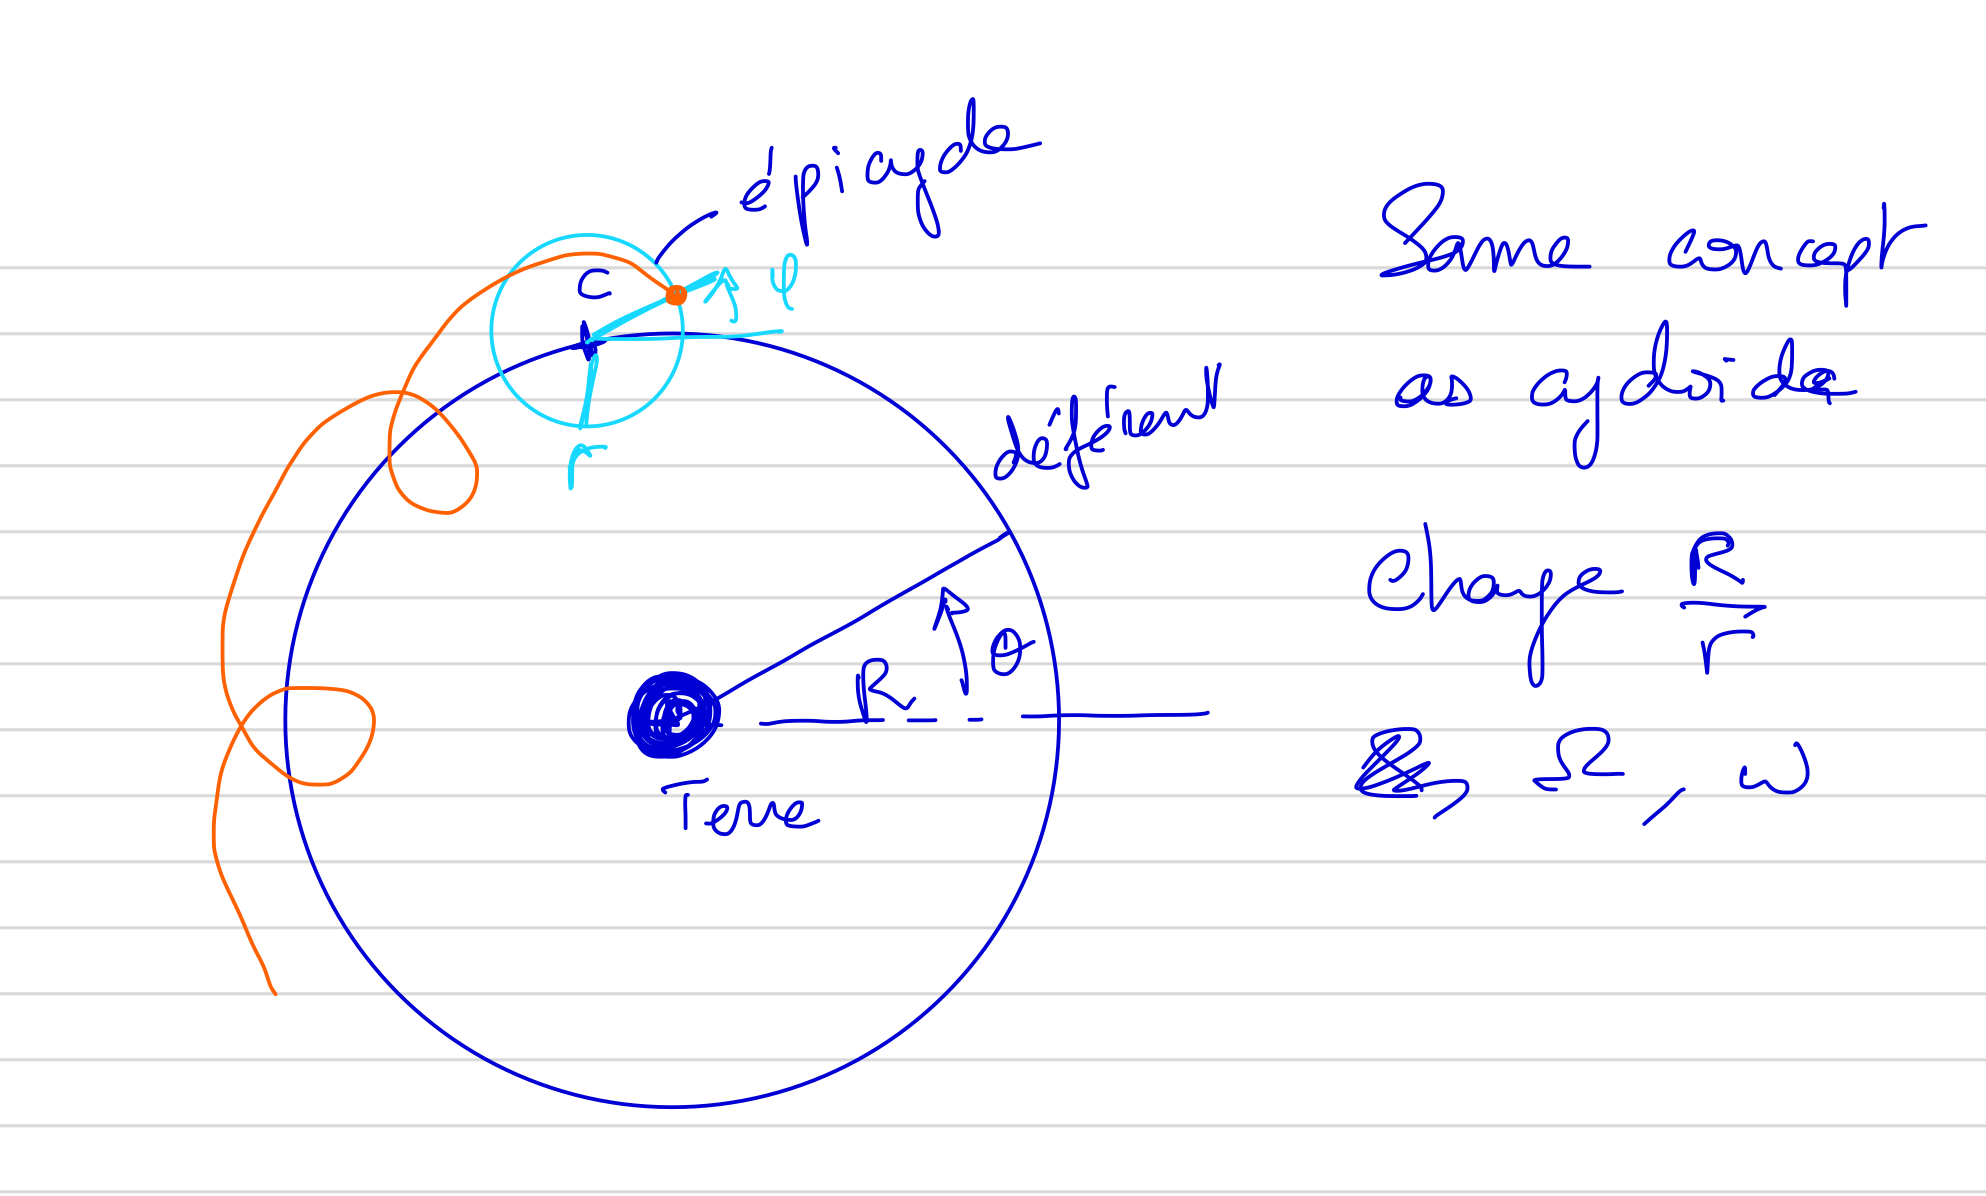 épicycle
C
φ
r
déférent
θ
R
Terre
Same concept
as cycloide
Change R
r
, Ω, ω